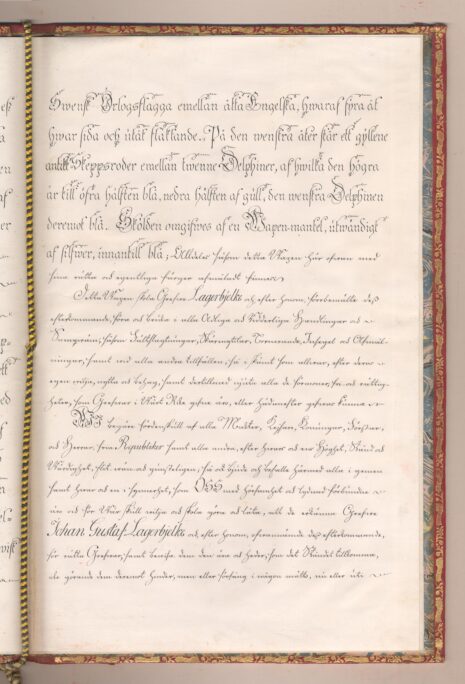 Swensk Örlogsflagga emellan åtta Engelska, hwaraf fyra åt
hwar sida och utåt fläktande. På den wenstra åter står ett gyllene
antikt Skeppsroder emellan twenne Delphiner, af hwilka den högra
är till öfra hälften blå, nedra hälften af gull, den wenstra Delphinen
deremot blå. Skölden omgifwes af en Wapen-mantel, utwändigt
af silfwer, innantill blå; Alldeles såsom detta Wapen här ofwan med
sina rätta och egentliga färger afmåladt finnes
Detta Wapen skola Grefwe Lagerbjelke och efter honom, förbemälte dess
efterkommande, föra och bruka i alla Adeliga och Ridderliga Handlingar och
såsom Fältslagtningar, Skärmytslar, Tornerande, Insegel och
samt wid alla andra tillfällen, så i Skämt som allwar, efter deras
egen wilja, nytta och behag, samt dertillmed njuta alla de förmoner
som Grefwar i Wårt Rike gifne äro, eller hädanefter gifwas kunna
Wi begäre fördenskull af alla Magter, Kejsare, Konungar, Förstar,
och Herrar, fria Republiker samt alla andra, efter hwars och ens Höghet, Stånd och
Wärdighet, och gunsteligen, så och bjude och befalle härmed alla i gemen
samt hwar och en i synnerhet, som OSS med hörsamhet och lydnad förbundne
äro och för Wår skull wilja och skola göra och låta, att de erkänna Grefwe
Johan Gustaf Lagerbjelke och efter honom, ofwannämnde dess efterkommande,
för rätta Grefwar, samt bewisa dem den äro och heder, som det Ståndet tillkomma,
ej görande dem deremot hinder, men eller förfång i någon måtto, nu eller uti